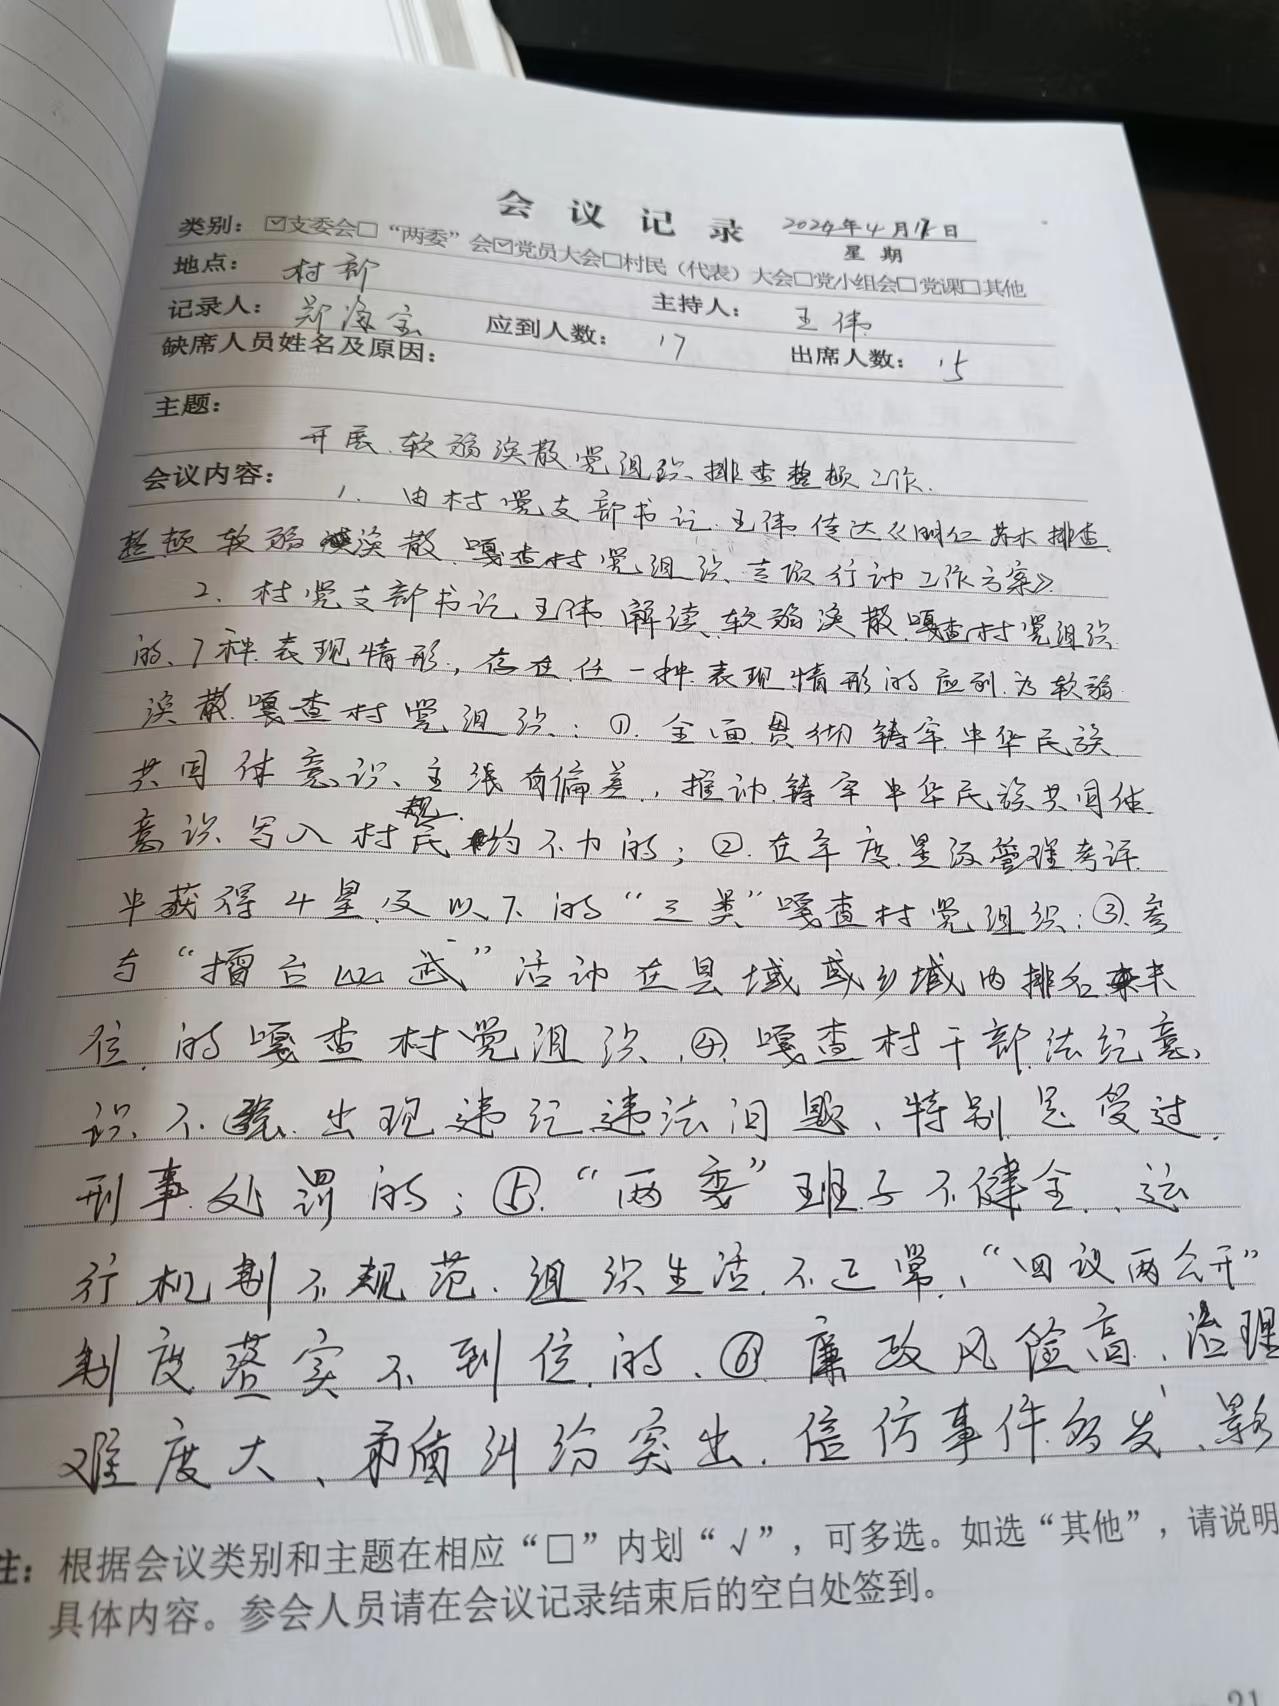 会 议 记 录 2024年4月17日
星 期
类别：☑支委会□“两委”会☑党员大会□村民（代表）大会□党小组会□党课□其他
地点：村部
主持人：王伟
记录人：郑海宝 应到人数：17 出席人数：15
缺席人员姓名及原因：
主题：
开展软弱涣散党组织排查整顿工作.
会议内容：
1. 由村党支部书记王伟传达《明仁苏木排查
整顿软弱涣散嘎查村党组织专项行动工作方案》.
2. 村党支部书记王伟解读软弱涣散嘎查村党组织
的7种表现情形，存在任一种表现情形的应列为软弱
涣散嘎查村党组织：①全面贯彻铸牢中华民族
共同体意识、主线有偏差，推动铸牢中华民族共同体
意识写入村规民约不力的；②在年度星级管理考评
中获得4星及以下的“三类”嘎查村党组织；③参
与“擂台比武”活动在县域或乡域内排名末
位的嘎查村党组织、④嘎查村干部法纪意
识不强、出现违纪违法问题、特别是受过
刑事处罚的；⑤“两委”班子不健全、运
行机制不规范、组织生活不正常、“四议两公开”
制度落实不到位的、⑥廉政风险高、治理
难度大、矛盾纠纷突出、信访事件多发、影
注：根据会议类别和主题在相应“□”内划“√”，可多选。如选“其他”，请说明
具体内容。参会人员请在会议记录结束后的空白处签到。
21